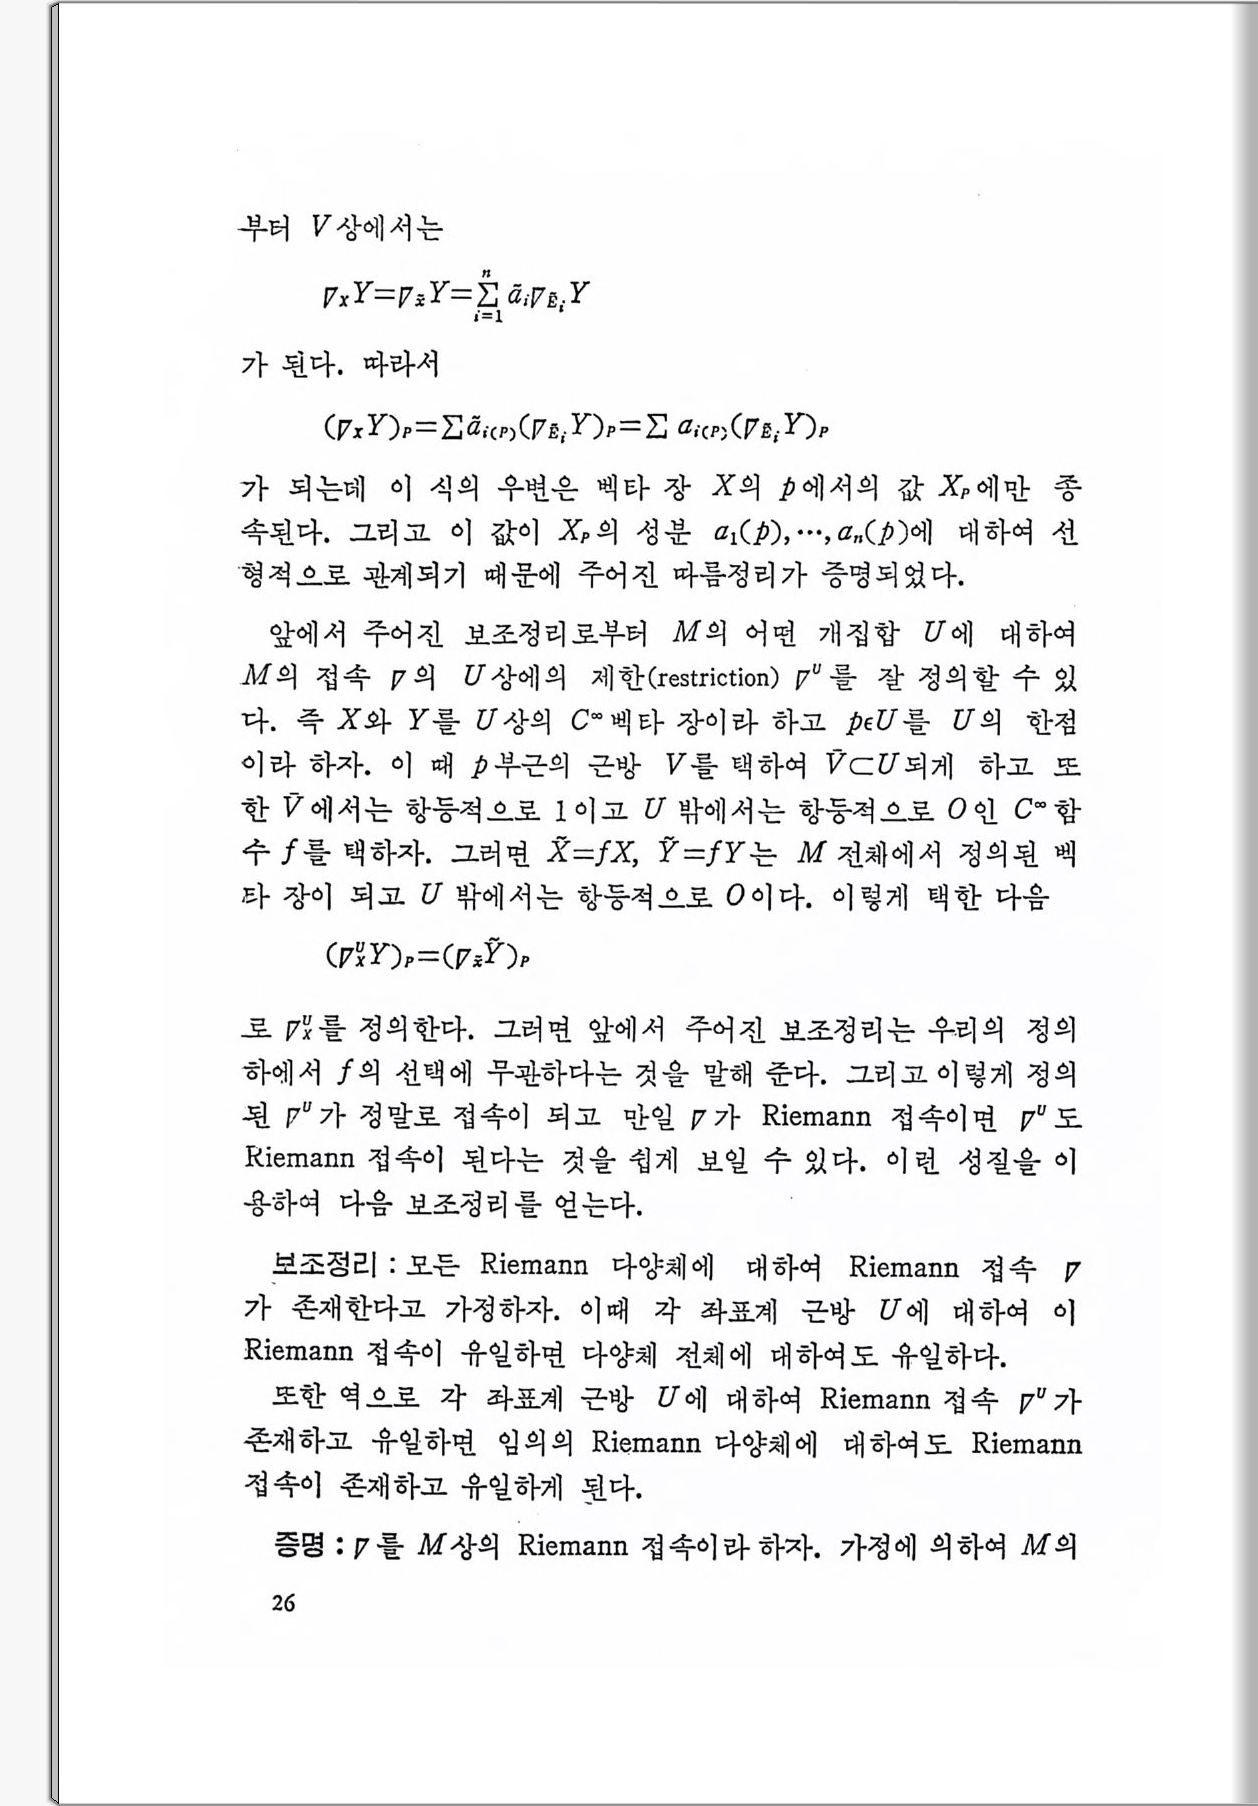 부터 V상에서는
∇ₓY=∇ₓ̃Y=∑ⁿᵢ₌₁ ãᵢ∇_Ẽᵢ Y
가 된다. 따라서
(∇ₓY)_P=∑ãᵢ(P)(∇_Ẽᵢ Y)_P=∑ aᵢ(P)(∇_Ẽᵢ Y)_P
가 되는데 이 식의 우변은 벡타 장 X의 p에서의 값 X_P에만 종
속된다. 그리고 이 값이 X_P의 성분 a₁(p),…,aₙ(p)에 대하여 선
형적으로 관계되기 때문에 주어진 따름정리가 증명되었다.
앞에서 주어진 보조정리로부터 M의 어떤 개집합 U에 대하여
M의 접속 ∇의 U상에의 제한(restriction) ∇ᵁ를 잘 정의할 수 있
다. 즉 X와 Y를 U상의 C^∞벡타 장이라 하고 pϵU를 U의 한점
이라 하자. 이 때 p부근의 근방 V를 택하여 V̄⊂U되게 하고 또
한 V̄에서는 항등적으로 1이고 U 밖에서는 항등적으로 O인 C^∞함
수 f를 택하자. 그러면 X̃=fX, Ỹ=fY는 M 전체에서 정의된 벡
타 장이 되고 U 밖에서는 항등적으로 O이다. 이렇게 택한 다음
(∇ᵁₓY)_P=(∇ₓ̃Ỹ)_P
로 ∇ᵁₓ를 정의한다. 그러면 앞에서 주어진 보조정리는 우리의 정의
하에서 f의 선택에 무관하다는 것을 말해 준다. 그리고 이렇게 정의
된 ∇ᵁ가 정말로 접속이 되고 만일 ∇가 Riemann 접속이면 ∇ᵁ도
Riemann 접속이 된다는 것을 쉽게 보일 수 있다. 이런 성질을 이
용하여 다음 보조정리를 얻는다.
보조정리 : 모든 Riemann 다양체에 대하여 Riemann 접속 ∇
가 존재한다고 가정하자. 이때 각 좌표계 근방 U에 대하여 이
Riemann 접속이 유일하면 다양체 전체에 대하여도 유일하다.
또한 역으로 각 좌표계 근방 U에 대하여 Riemann 접속 ∇ᵁ가
존재하고 유일하면 임의의 Riemann 다양체에 대하여도 Riemann
접속이 존재하고 유일하게 된다.
증명 : ∇를 M상의 Riemann 접속이라 하자. 가정에 의하여 M의
26